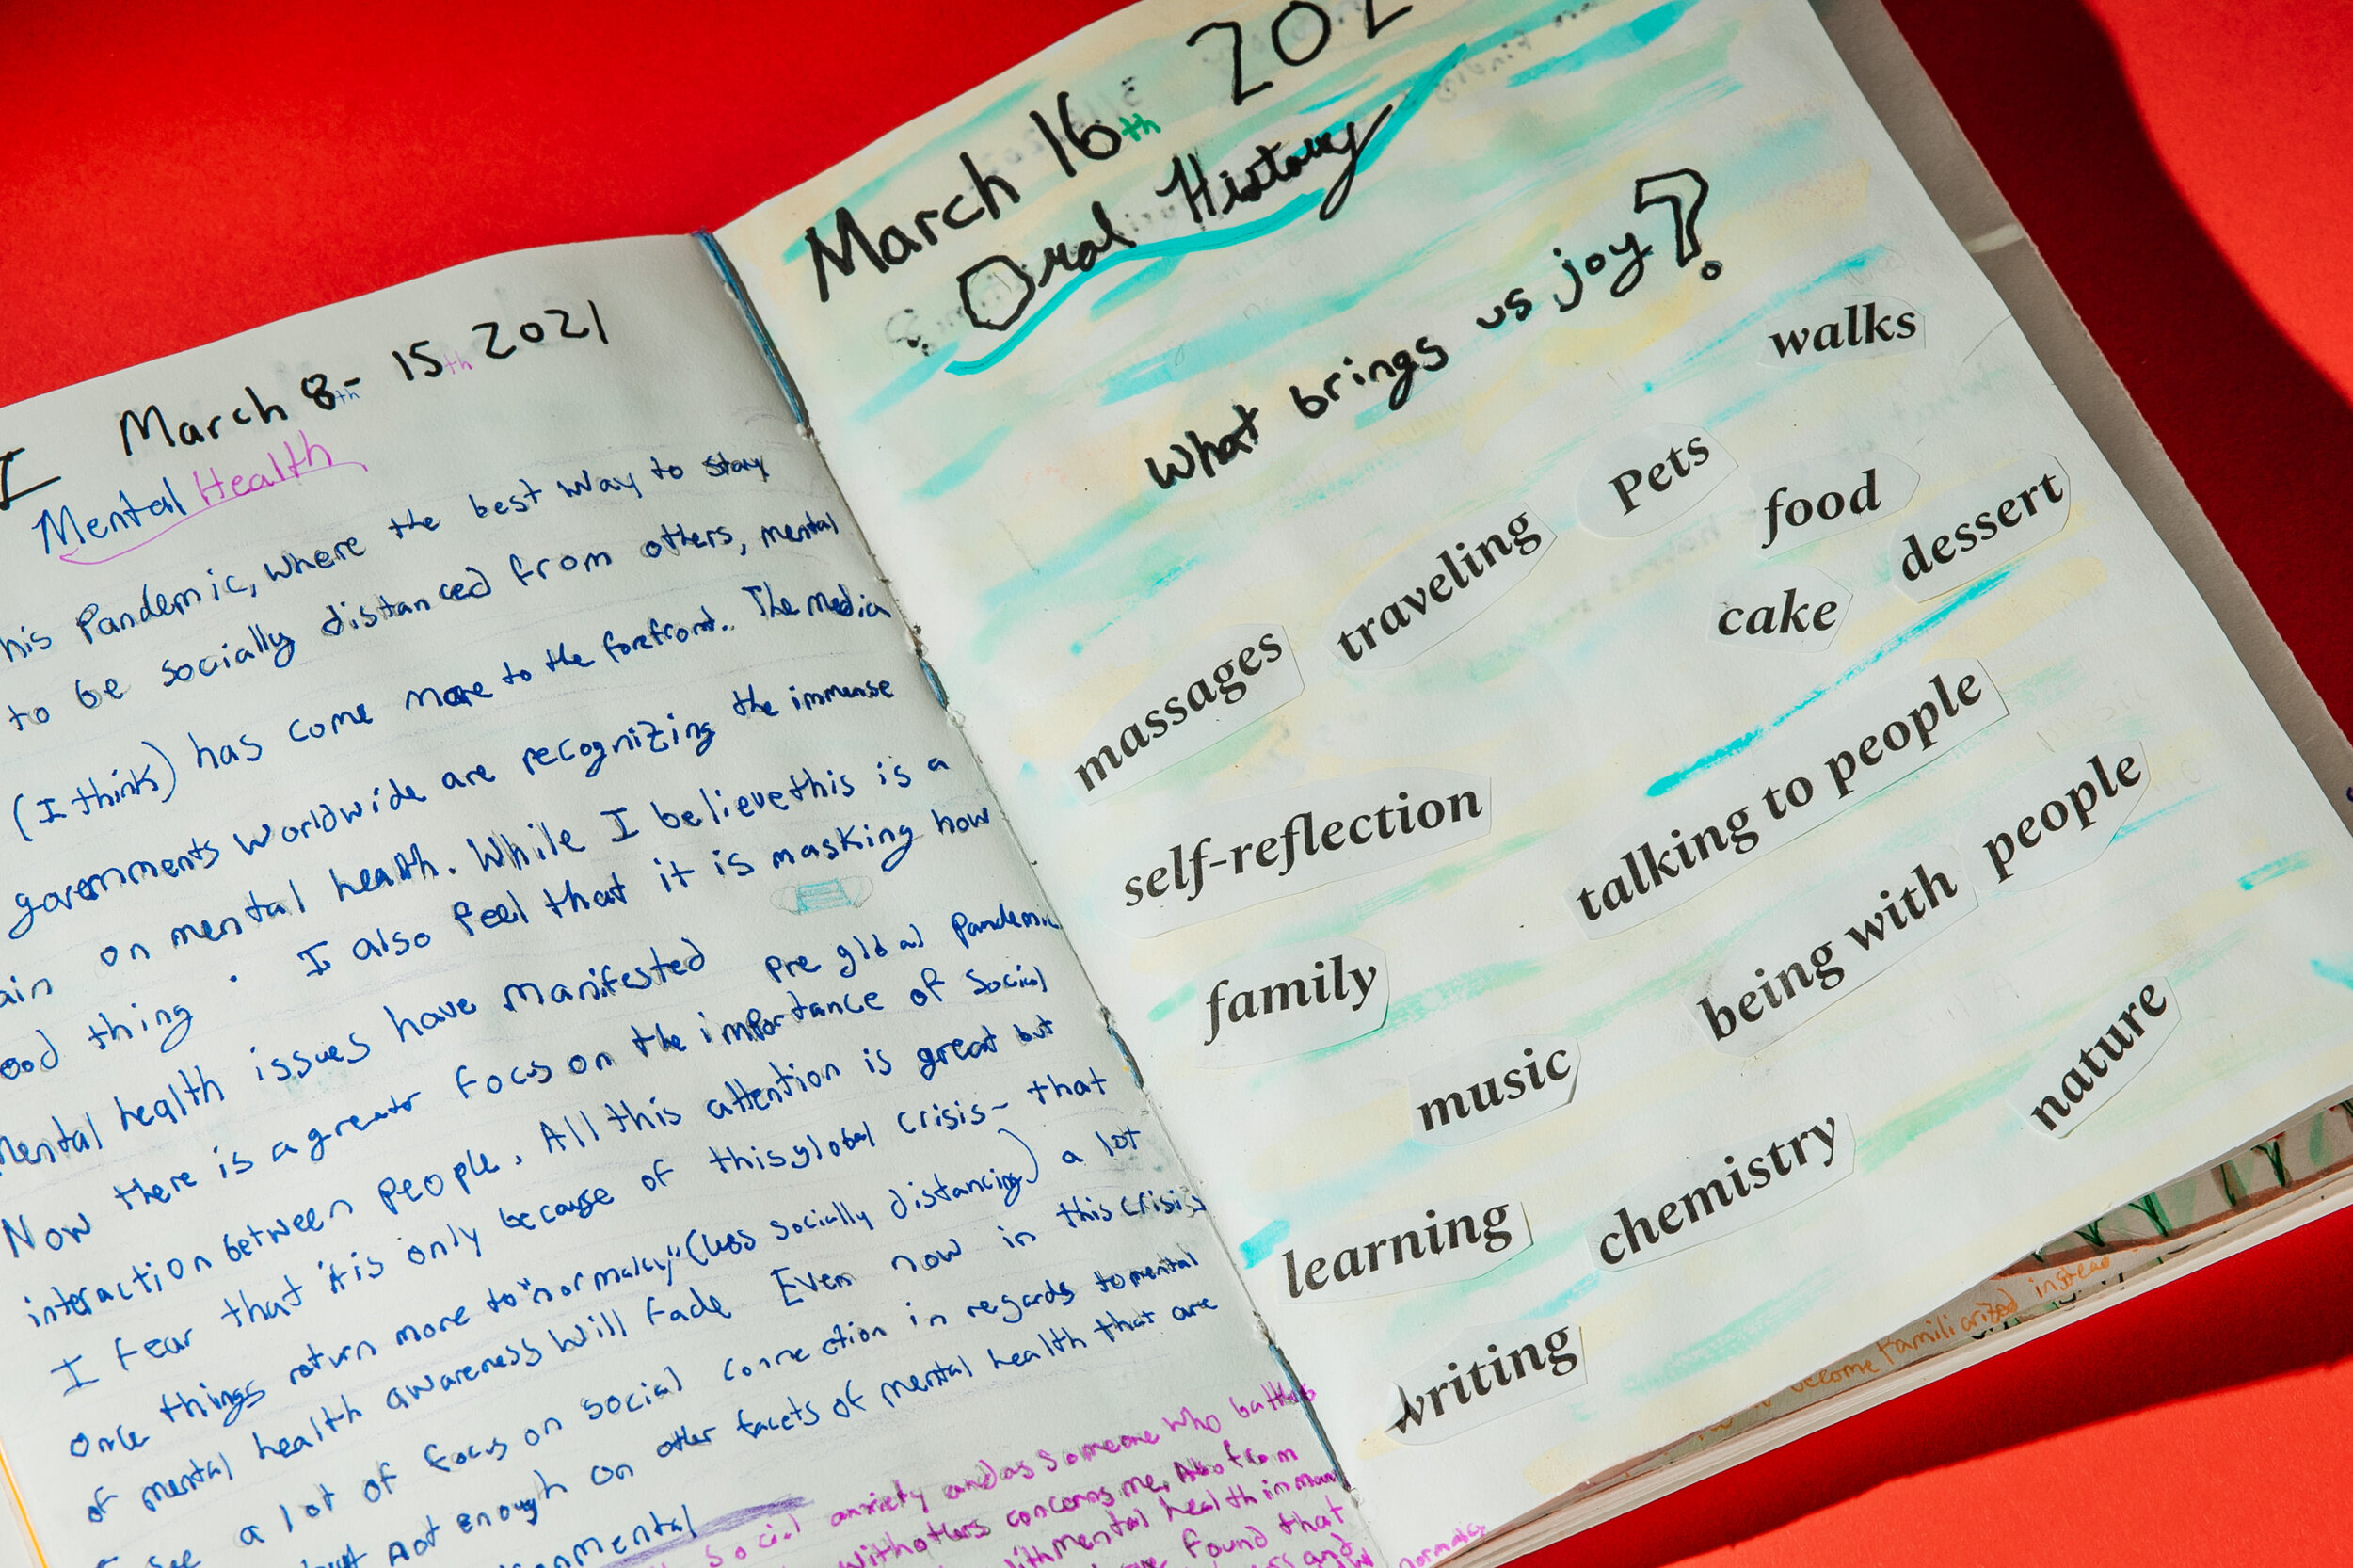 I March 8th - 15th 2021
Mental Health
his Pandemic, where the best way to stay
to be socially distanced from others, mental
(I think) has come more to the forefront. The media
governments worldwide are recognizing the immense
ain on mental health. While I believe this is a
ood thing. I also feel that it is masking how
Mental health issues have manifested pre global pandemic
Now there is a greater focus on the importance of social
interaction between people. All this attention is great but
I fear that it is only because of this global crisis - that
once things return more to "normalcy" (less socially distancing) a lot
of mental health awareness will fade Even now in this crisis
see a lot of focus on social connection in regards to mental
but not enough on other facets of mental health that are
social anxiety and as someone who battles
with others concerns me. Also from
mental health in man
found that
and
March 16th 202
Oral History
What brings us joy?
walks
Pets
food
dessert
traveling
cake
massages
talking to people
self-reflection
being with people
family
nature
music
chemistry
learning
writing
become familiarized instead